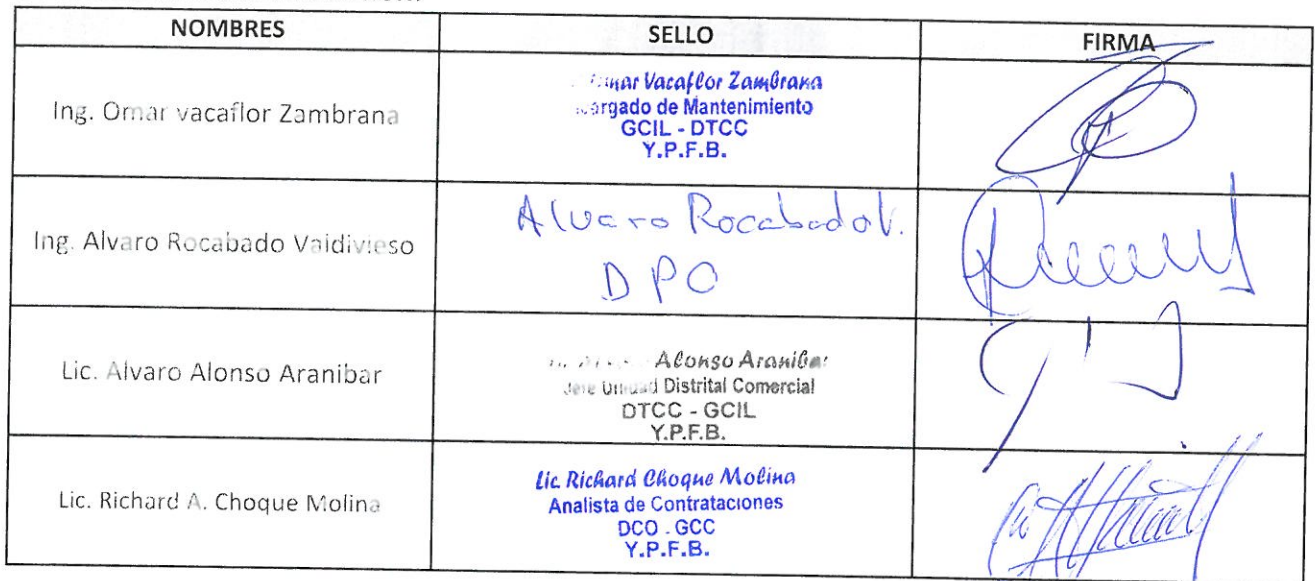 NOMBRES SELLO FIRMA
Ing. Omar vacaflor Zambrana
Omar Vacaflor Zambrana
Encargado de Mantenimiento
GCIL - DTCC
Y.P.F.B.
Ing. Alvaro Rocabado Valdivieso
Alvaro Rocabado V.
DPO
Lic. Alvaro Alonso Aranibar
Alonso Aranibar
Jefe Unidad Distrital Comercial
DTCC - GCIL
Y.P.F.B.
Lic. Richard A. Choque Molina
Lic. Richard Choque Molina
Analista de Contrataciones
DCO - GCC
Y.P.F.B.